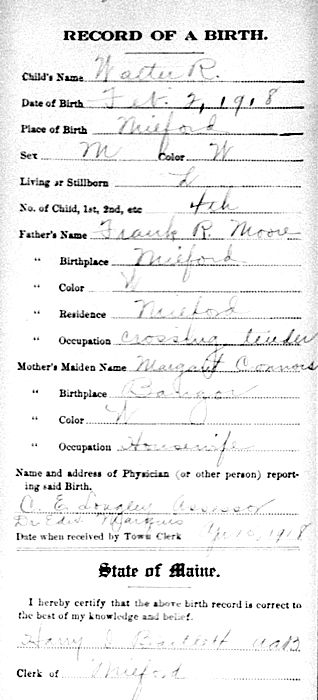 RECORD OF A BIRTH.
Child's Name Walter R.
Date of Birth Feb. 2, 1918
Place of Birth Milford
Sex M Color W
Living or Stillborn L
No. of Child, 1st, 2nd, etc 4th
Father's Name Frank R. Moore
" Birthplace Milford
" Color W
" Residence Milford
" Occupation crossing tender
Mother's Maiden Name Margaret Connors
" Birthplace Bangor
" Color W
" Occupation Housewife
Name and address of Physician (or other person) report-
ing said Birth.
C. E. Longley Assessor
Dr Marquis
Date when received by Town Clerk 1918
State of Maine.
I hereby certify that the above birth record is correct to
the best of my knowledge and belief.
Harry Bartlett
Clerk of Milford